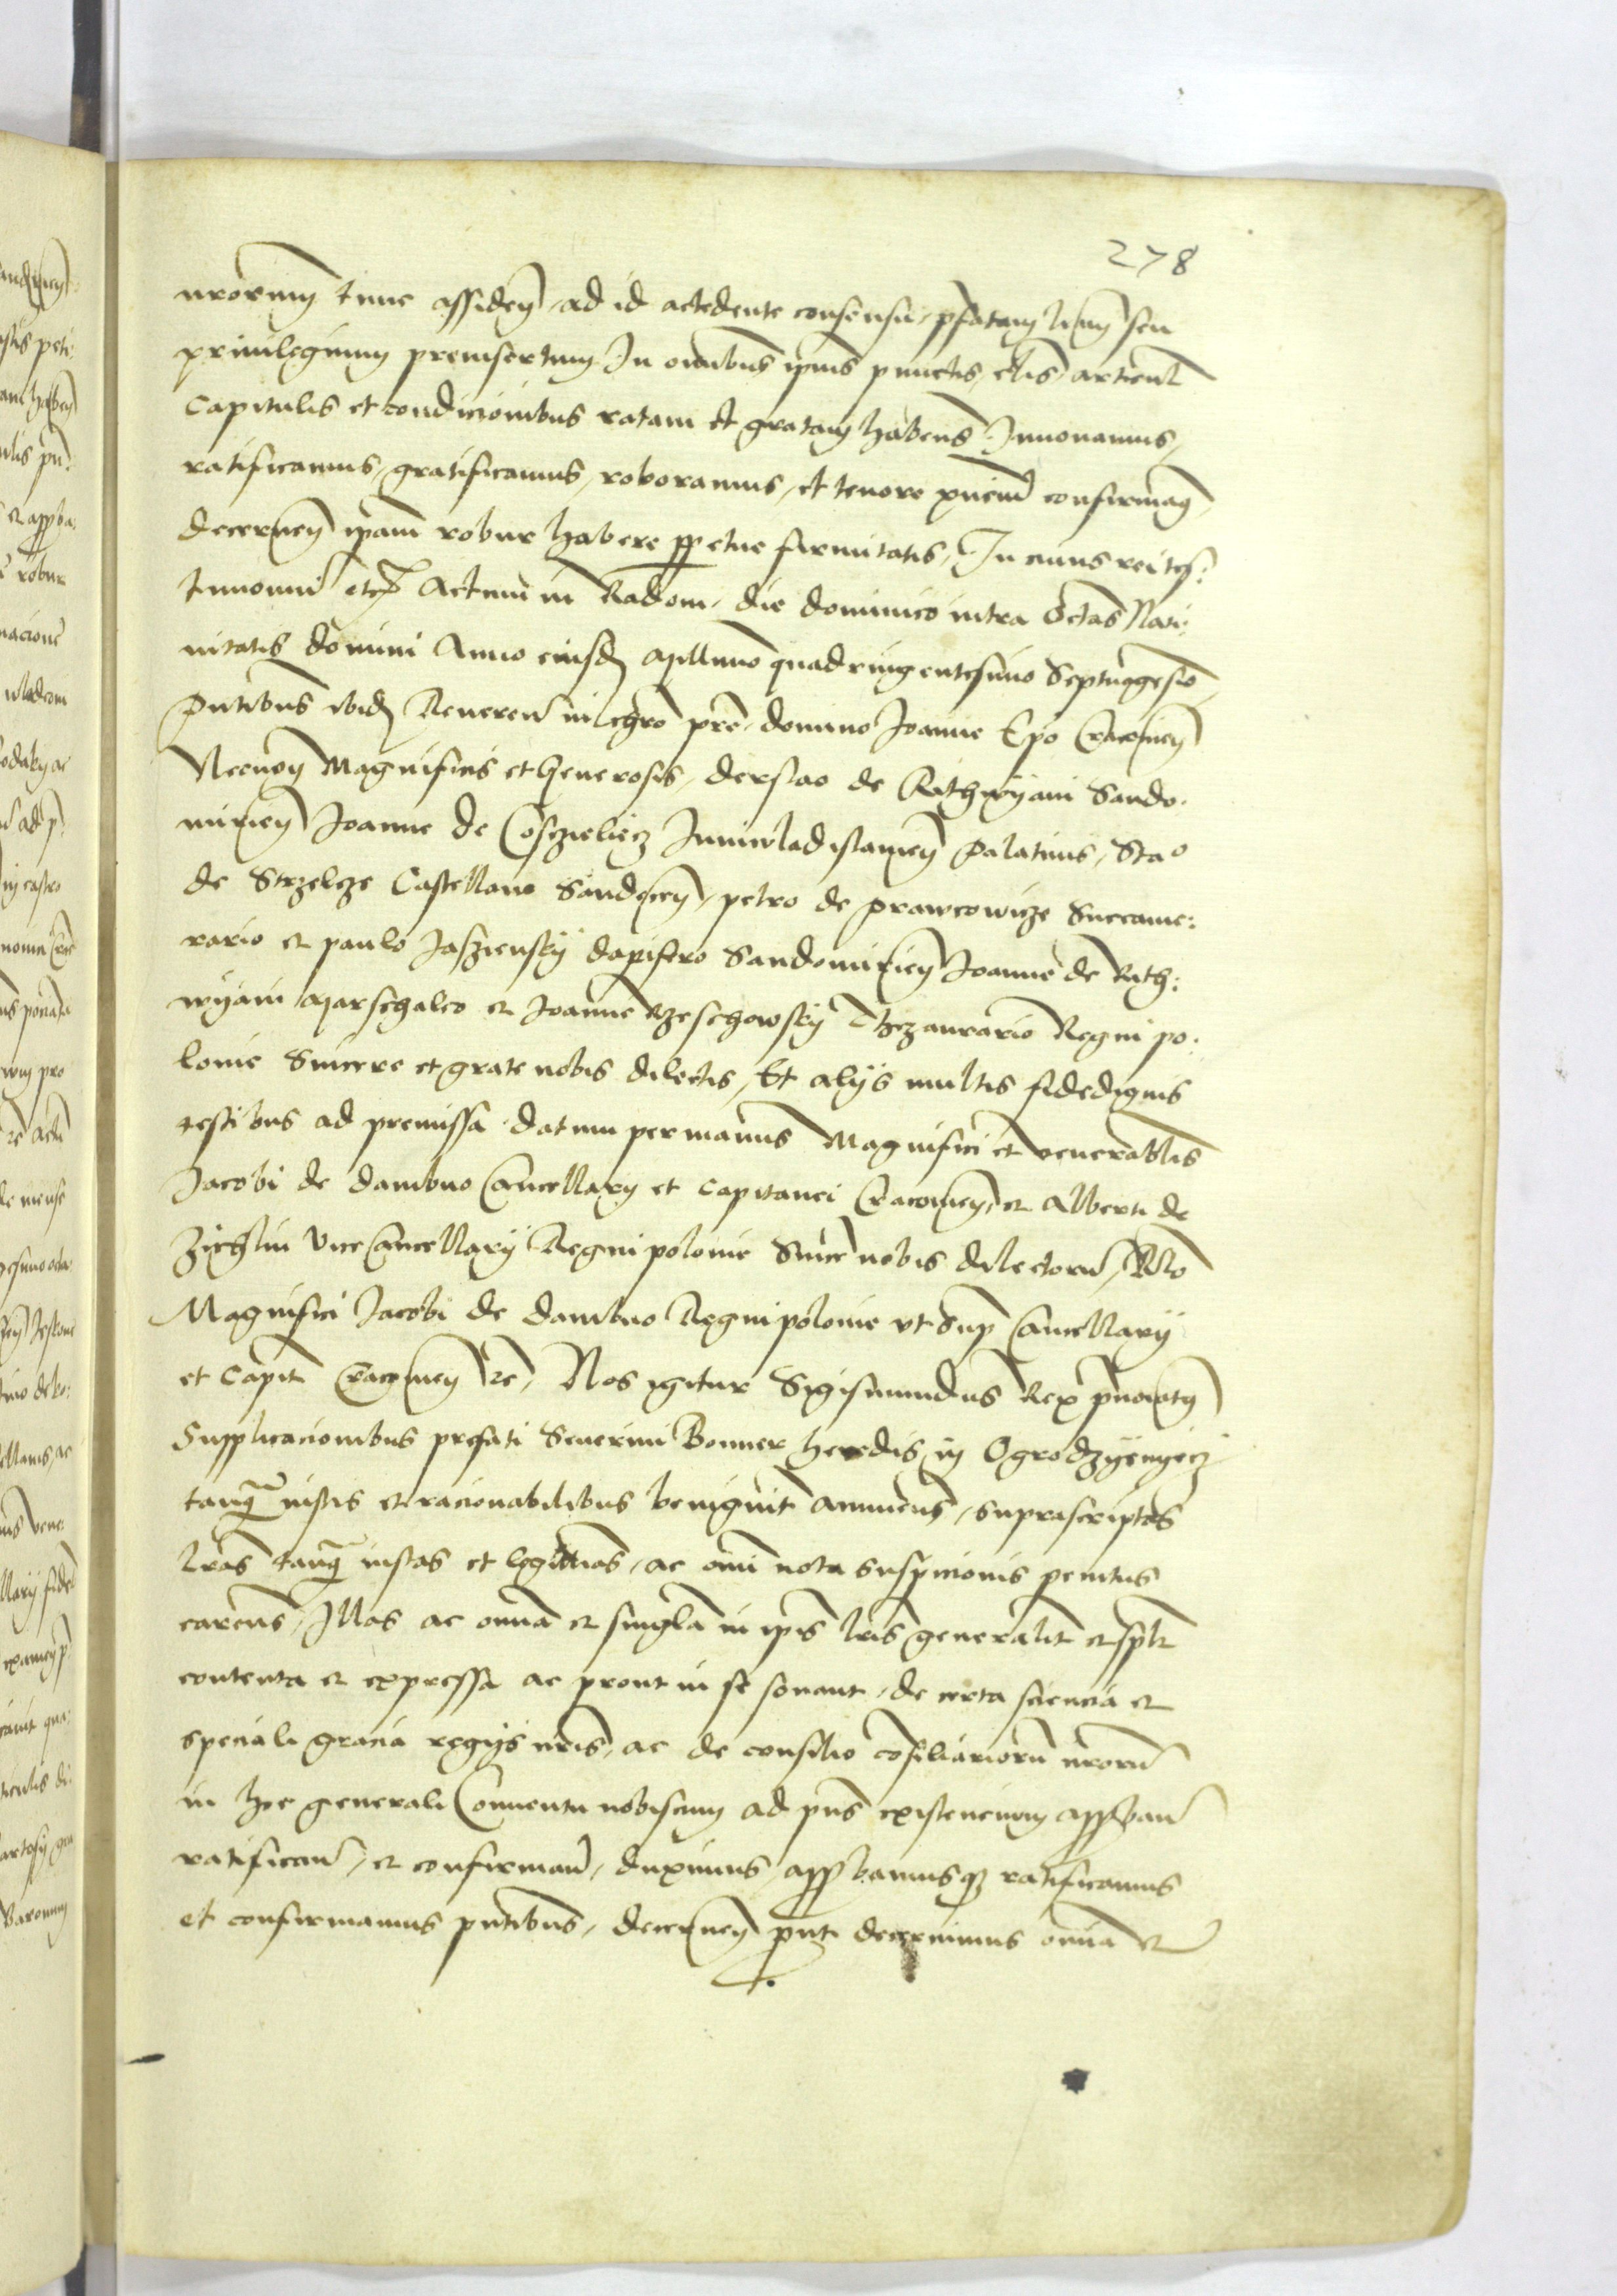 278
nrorum tunc assiden ad id accedente consensu, prefatam lram seu
priuilegium preinsertum In omnibus ipius punctis, clis, articul
Capitulis et condicionibus ratam et gratam habens Innouamus,
ratificamus, gratificamus, roboramus, et tenore pncium confirmam
decernen ipam robur habere ppetue firmitatis, In cuius rei tes:
timonium etc Actum in Radom, die dominico intra Octas Nati:
uitatis domini Anno eiusd Millimo quadringentesimo Septuagesimo
Pntibus ibid Reueren in chro pre domino Joanne Epo Cracouien
Necnon Magnificis et Generosis, derslao de Rithwyani Sando:
mirien Joanne de Cosczielecz Juniwladislauien Palatinis, Stao
de Strzelcze Castellano Sandecen, petro de prawcowicze Succame:
rario et paulo Jasziensky dapifero Sandomirien Joanne de Rith:
wyani Marschalco et Joanne Rzeschowsky Thezaurario Regni po:
lonie Sincere et grate nobis dilectis, Et alijs multis fidedignis
testibus ad premissa datum per manus Magnifici et venerablis
Jacobi de dambno Cancellary et Capitanei Cracouien, et Alberti de
Zichlin Vicecancellarij Regni polonie Since nobis dilectoru, Rlo
Magnifici Jacobi de dambno Regni polonie vt Sup Cancellarij
et Capit Cracouien etc, Nos igitur Sigismundus Rex pnoiatus
Supplicacionibus prefati Seuerini Bonner heredis in Ogrodzyenyecz
tanq iustis et racionabilibus benignit annuens, suprascriptas
lras tanq iustas et legittias, ac omi nota suspicionis penitus
carens, Illas ac omia et singla in ipis lris generalit et splr
contenta et expressa ac prout in se sonant, de certa sciencia et
speciali gracia regijs nris, ac de consilio cosiliariorum nrorum
in hoc generali Conuentu nobiscum ad pns existencium appban
ratifican, et confirman, duximus, appbamusq ratificamus
et confirmamus pntibus, decernen put decernimus omia et